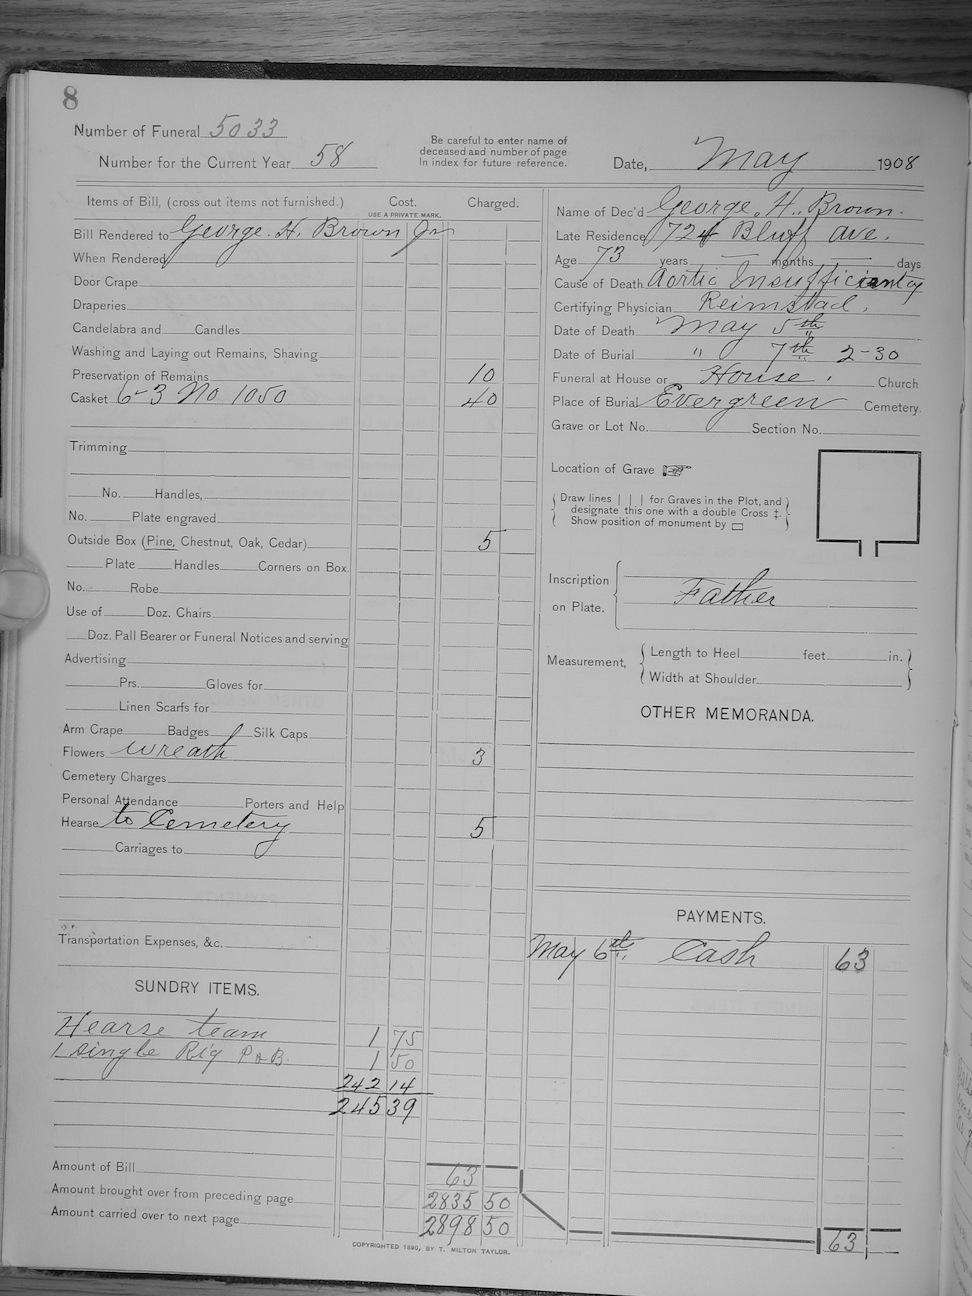 8
Number of Funeral 5033
Number for the Current Year 58
Be careful to enter name of
deceased and number of page
in index for future reference.
Date, May 1908
Items of Bill, (cross out items not furnished.) Cost. Charged.
USE A PRIVATE MARK.
Bill Rendered to George. H. Brown Jr
When Rendered
Door Crape
Draperies
Candelabra and Candles
Washing and Laying out Remains, Shaving
Preservation of Remains 10
Casket 6-3 No 1050 40
Trimming
No. Handles,
No. Plate engraved
Outside Box (Pine, Chestnut, Oak, Cedar) 5
Plate Handles Corners on Box.
No. Robe
Use of Doz. Chairs
Doz. Pall Bearer or Funeral Notices and serving
Advertising
Prs. Gloves for
Linen Scarfs for
Arm Crape Badges Silk Caps
Flowers wreath 3
Cemetery Charges
Personal Attendance Porters and Help
Hearse to Cemetery 5
Carriages to
Transportation Expenses, &c.
SUNDRY ITEMS.
Hearse team 1 75
1 single Rig P & B. 1 50
242 14
245 39
Amount of Bill 63
Amount brought over from preceding page 2835 50
Amount carried over to next page 2898 50
Name of Dec'd George. H. Brown.
Late Residence 724 Bluff ave.
Age 73 years — months days
Cause of Death Aortic Insufficiantcy
Certifying Physician Reimstad.
Date of Death May 5th
Date of Burial " 7th 2-30
Funeral at House or House. Church
Place of Burial Evergreen Cemetery.
Grave or Lot No. Section No.
Location of Grave
Draw lines | | | for Graves in the Plot, and
designate this one with a double Cross ‡.
Show position of monument by ▭
Inscription
on Plate.
Father
Measurement, Length to Heel feet in.
Width at Shoulder
OTHER MEMORANDA.
PAYMENTS.
May 6th Cash 63
63
COPYRIGHTED 1890, BY T. MILTON TAYLOR.